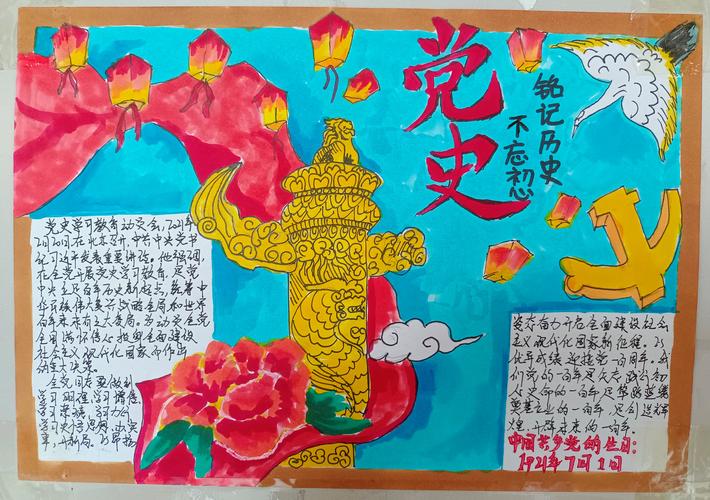 党史
铭记历史
不忘初心
党史学习教育动员会，2021年
2月20日在北京召开，中共中央党书
记习近平发表重要讲话。他强调，
在全党开展党史学习教育，是党
中央立足百年历史新起点，统筹中
华民族伟大复兴战略全局和世界
百年未有之大变局。为动员全党
全国满怀信心投身全面建设
社会主义现代化国家而作出
的重大决策。
全党同志要做到
学习明理，学习增信，
学习崇德，学习力行
学习史学思践悟，办实
事，开新局。以昂扬
姿态奋力开启全面建设社会
主义现代化国家新征程。以
优异成绩迎接党一百周年。我
们党的一百年是矢志践行初
心使命的一百年，是筚路蓝缕
奠基立业的一百年，是创造辉
煌，开辟未来的一百年。
中国共产党的生日：
1921年7月1日